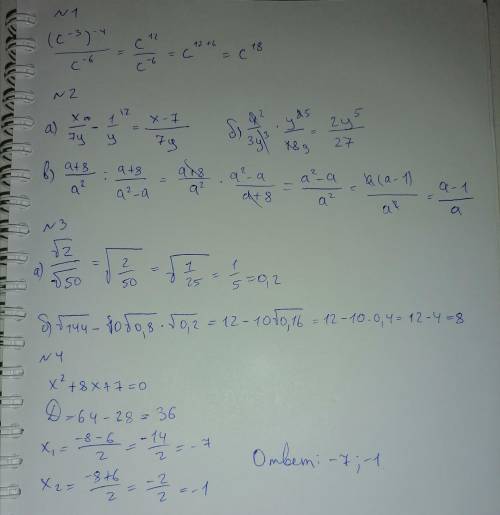 №1
(c⁻³)⁻⁴/c⁻⁶ = c¹²/c⁻⁶ = c¹²⁺⁶ = c¹⁸
№2
а) x/7y - 1/y = x-7/7y б) /3y · y/ = 2y⁵/27
в) a+8/a² : a+8/a²-a = a+8/a² · a²-a/a+8 = a²-a/a² = a(a-1)/a² = a-1/a
№3
а) √2/√50 = √2/50 = √1/25 = 1/5 = 0,2
б) √144 - 10√0,8 · √0,2 = 12-10√0,16 = 12-10·0,4 = 12-4 = 8
№4
x²+8x+7=0
D=64-28=36
x₁ = -8-6/2 = -14/2 = -7
x₂ = -8+6/2 = -2/2 = -1
Ответ: -7;-1